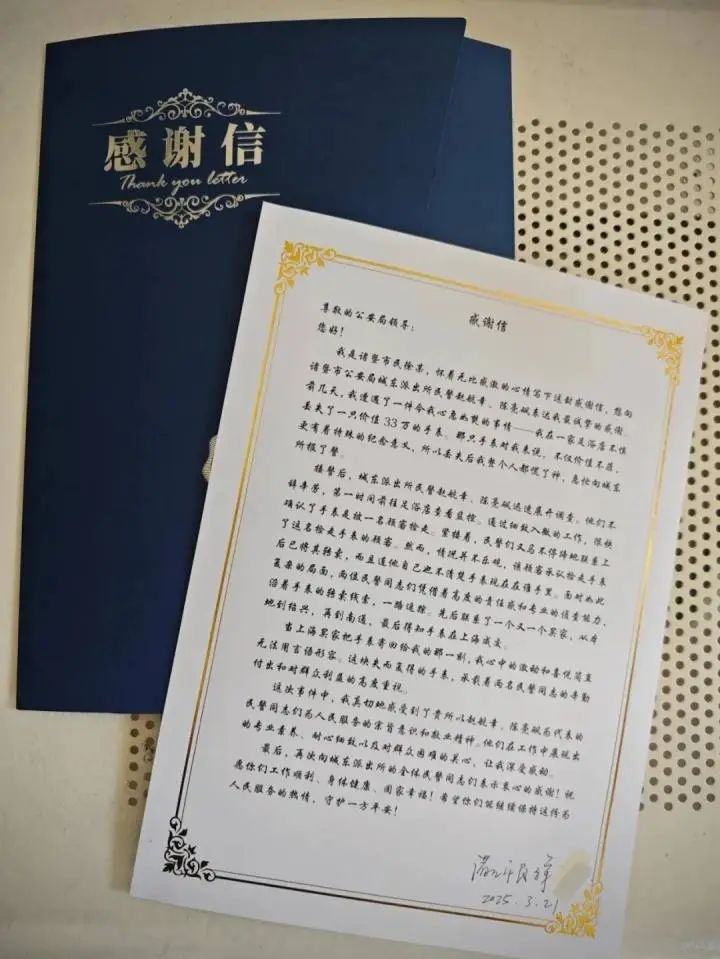 感谢信
Thank you letter
感谢信
尊敬的公安局领导：
您好！
我是诸暨市民徐某，怀着无比感激的心情写下这封感谢信，想向
诸暨市公安局城东派出所民警赵航章、陈亮斌表达我最诚挚的感谢。
前几天，我遭遇了一件令我心急如焚的事情——我在一家足浴店不慎
丢失了一只价值33万的手表。那只手表对我来说，不仅价值不菲，
更有着特殊的纪念意义，所以丢失后我整个人都慌了神，急忙向城东
所报了警。
接警后，城东派出所民警赵航章、陈亮斌迅速展开调查。他们不
辞辛劳，第一时间前往足浴店查看监控。通过细致入微的工作，很快
确认了手表是被一名顾客捡走。紧接着，民警们又马不停蹄地联系上
了这名捡走手表的顾客。然而，情况并不乐观，该顾客承认捡走手表
后已将其转卖，而且连他自己也不清楚手表现在在谁手里。面对如此
复杂的局面，两位民警同志们凭借着高度的责任感和专业的侦查能力，
沿着手表的转卖线索，一路追踪。先后联系了一个又一个买家，从本
地到绍兴，再到南通，最后得知手表在上海成交。
当上海买家把手表寄回给我的那一刻，我心中的激动和喜悦简直
无法用言语形容。这块失而复得的手表，承载着两名民警同志的辛勤
付出和对群众利益的高度重视。
这次事件中，我真切地感受到了贵所以赵航章、陈亮斌为代表的
民警同志们为人民服务的宗旨意识和敬业精神。他们在工作中展现出
的专业素养、耐心细致以及对群众困难的关心，让我深受感动。
最后，再次向城东派出所的全体民警同志们表示衷心的感谢！祝
愿你们工作顺利、身体健康、阖家幸福！希望你们能继续保持这份为
人民服务的热情，守护一方平安！
2025.3.21